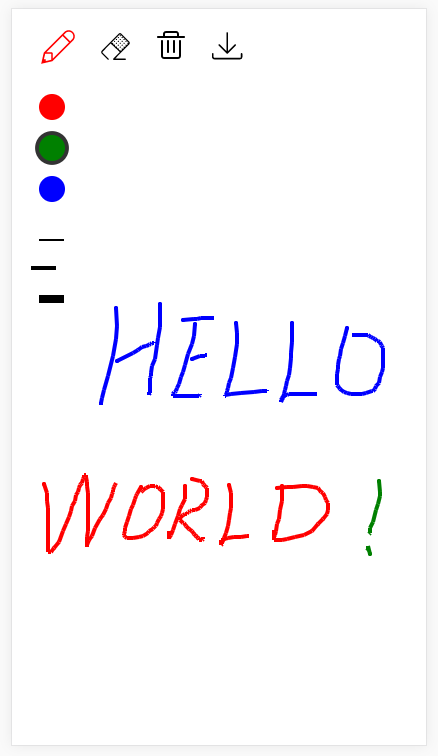 HELLO
WORLD!